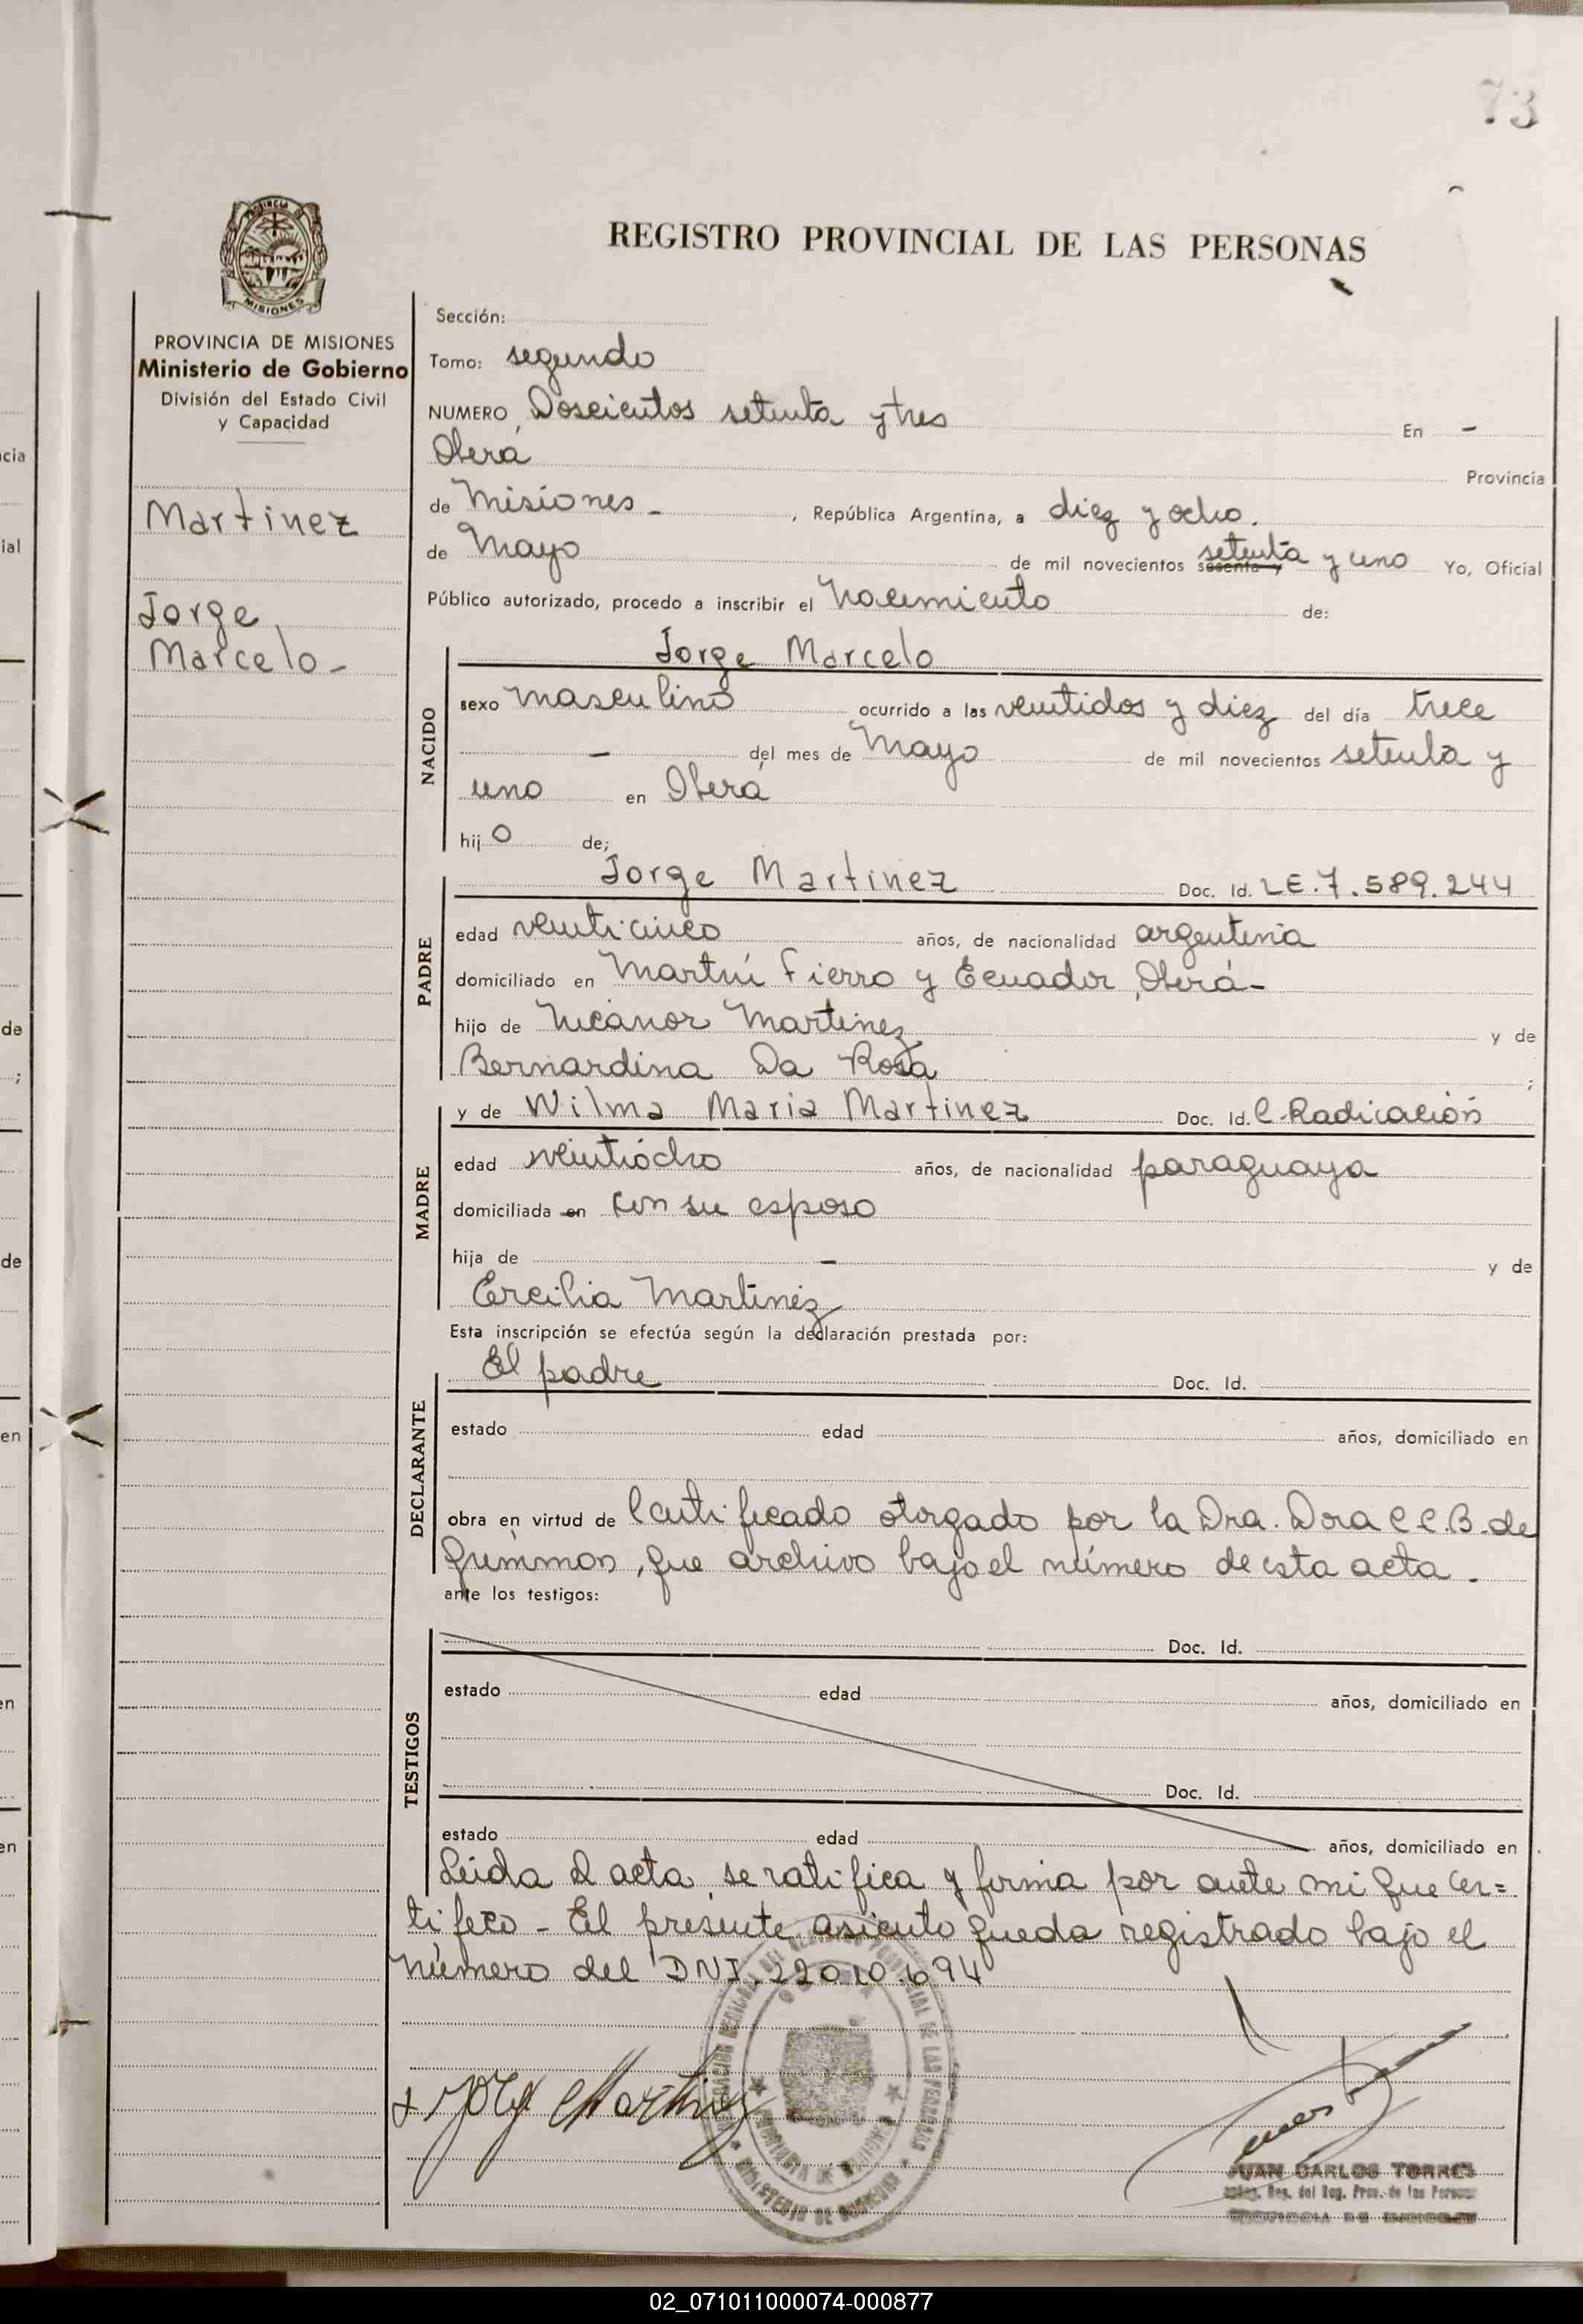 73
REGISTRO PROVINCIAL DE LAS PERSONAS
MISIONES
PROVINCIA DE MISIONES
Ministerio de Gobierno
División del Estado Civil
y Capacidad
Martinez
Jorge
Marcelo-
Sección:
Tomo: segundo
NUMERO Doscientos setenta y tres En -
Oberá Provincia
de Misiones - , República Argentina, a diez y ocho.
de Mayo de mil novecientos sesenta y setenta y uno Yo, Oficial
Público autorizado, procedo a inscribir el nacimiento de:
Jorge Marcelo
NACIDO
sexo masculino ocurrido a las veintidos y diez del día trece
- del mes de Mayo de mil novecientos setenta y
uno en Oberá
hijo de;
Jorge Martinez Doc. Id. LE.7.589.244
PADRE
edad veinticinco años, de nacionalidad argentina
domiciliado en Martín Fierro y Ecuador, Oberá-
hijo de Nicanor Martinez y de
Bernardina Da Rosa ;
y de Wilma Maria Martinez Doc. Id. C.Radicación
MADRE
edad veintiocho años, de nacionalidad paraguaya
domiciliada en con su esposo
hija de - y de
Ercilia Martinez
Esta inscripción se efectúa según la declaración prestada por:
El padre Doc. Id.
DECLARANTE
estado edad años, domiciliado en
obra en virtud de Certificado otorgado por la Dra. Dora C.C.B. de
que archivo bajo el número de esta acta.
ante los testigos:
TESTIGOS
Doc. Id.
estado edad años, domiciliado en
Doc. Id.
estado edad años, domiciliado en
Leida el acta, se ratifica y firma por ante mi que cer=
tifico - El presente asiento queda registrado bajo el
número del DNI.22010.694
Jorge Martinez
JUAN CARLOS TORRES
02_071011000074-000877